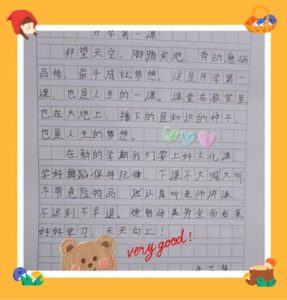 开学第一课
仰望天空，脚踏实地，劳动磨砺
品格，奋斗成就梦想。这是开学第一
课，也是人生的一课。课堂在教室里，
也在大地上，播下的是知识的种子，
也是人生的梦想。
在新的学期我们要上好文化课，
学好舞蹈保持纪律，下课不大喊大叫
不带危险物品，认真听老师讲课，
不迟到不早退。德智体美劳全面发展
好好学习，天天向上！
very good!